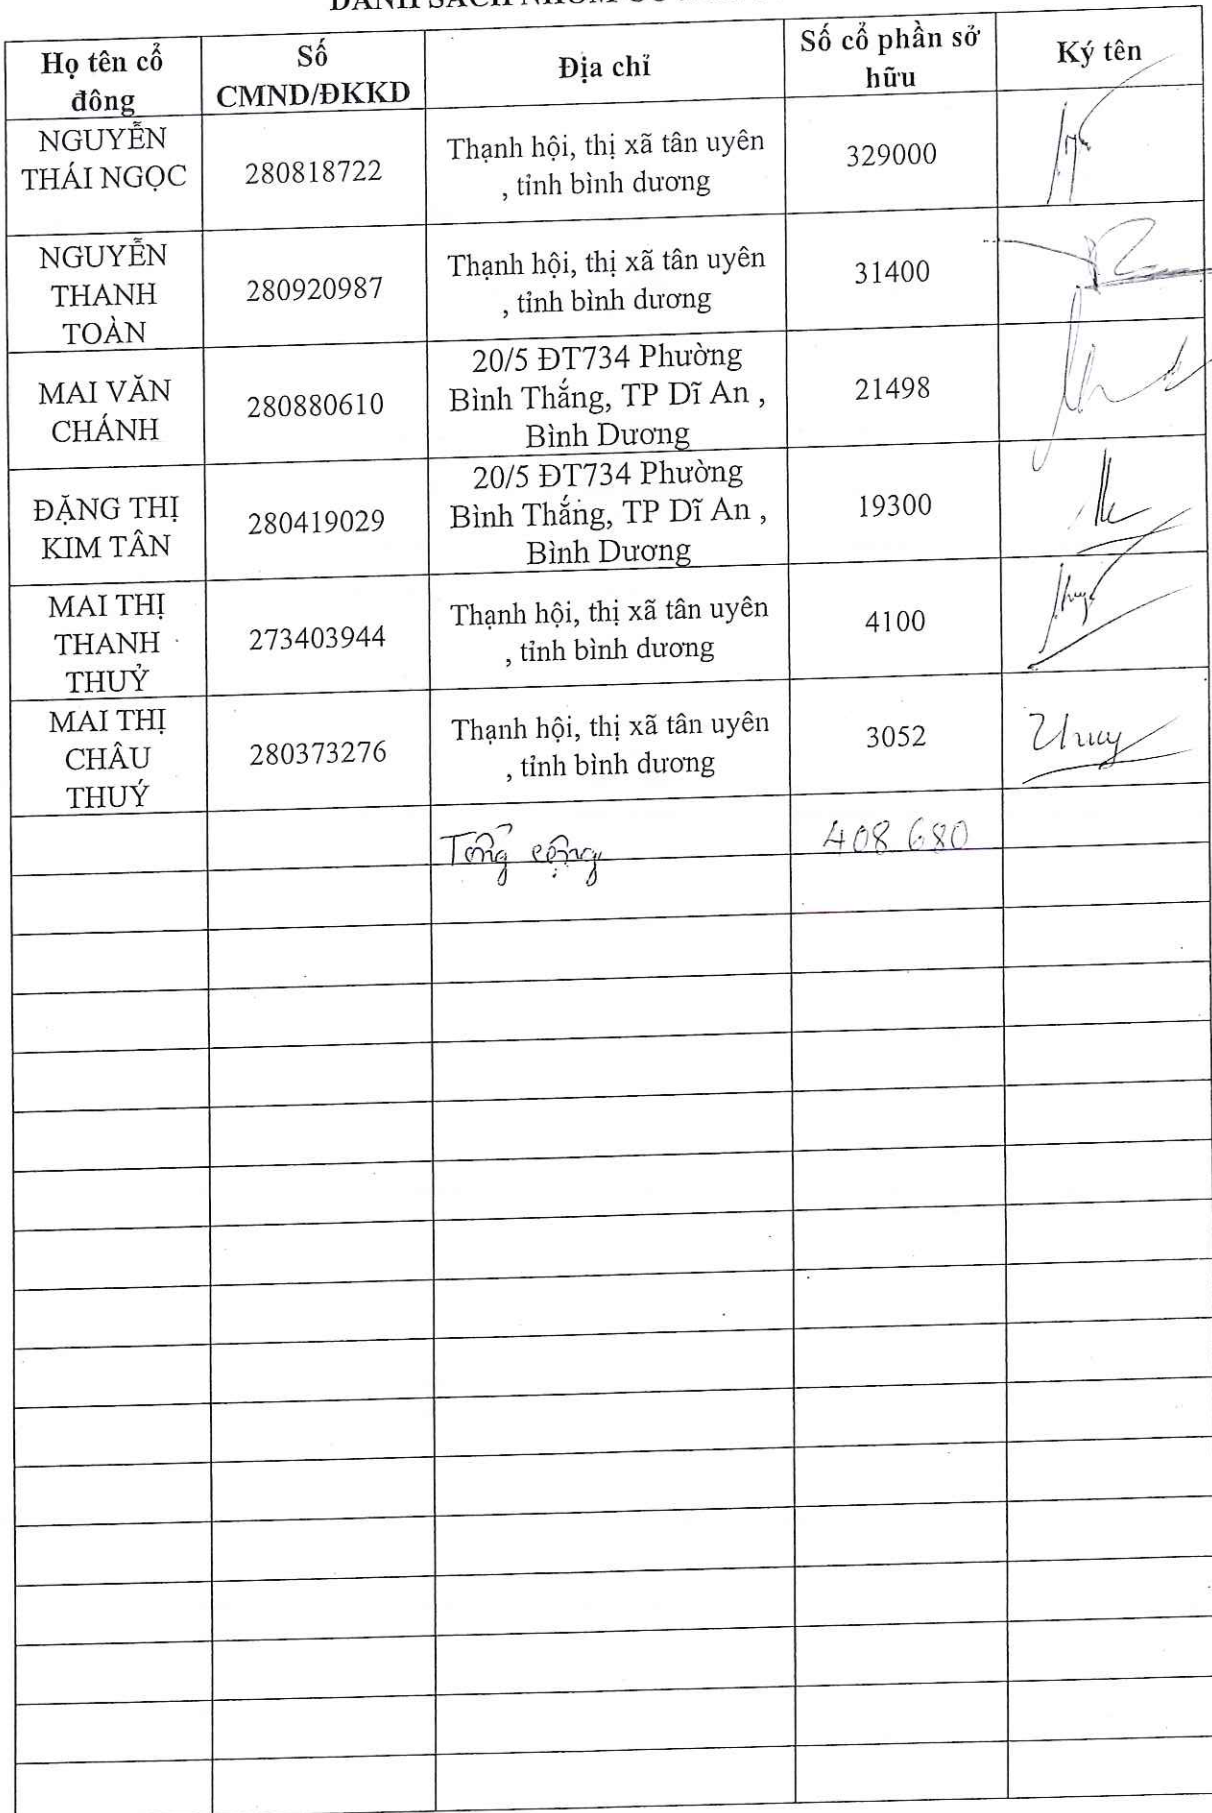 DANH SÁCH NHÓM
Họ tên cổ đông
Số CMND/ĐKKD
Địa chỉ
Số cổ phần sở hữu
Ký tên
NGUYỄN THÁI NGỌC
280818722
Thạnh hội, thị xã tân uyên
, tỉnh bình dương
329000
NGUYỄN THANH TOÀN
280920987
Thạnh hội, thị xã tân uyên
, tỉnh bình dương
31400
MAI VĂN CHÁNH
280880610
20/5 ĐT734 Phường
Bình Thắng, TP Dĩ An ,
Bình Dương
21498
ĐẶNG THỊ KIM TÂN
280419029
20/5 ĐT734 Phường
Bình Thắng, TP Dĩ An ,
Bình Dương
19300
MAI THỊ THANH THUỶ
273403944
Thạnh hội, thị xã tân uyên
, tỉnh bình dương
4100
MAI THỊ CHÂU THUÝ
280373276
Thạnh hội, thị xã tân uyên
, tỉnh bình dương
3052
Tổng cộng
408 680